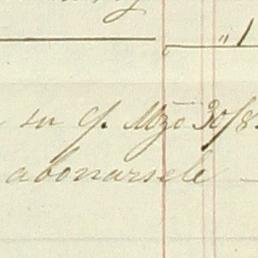 su c/. Mzo 30/8
abonarsele